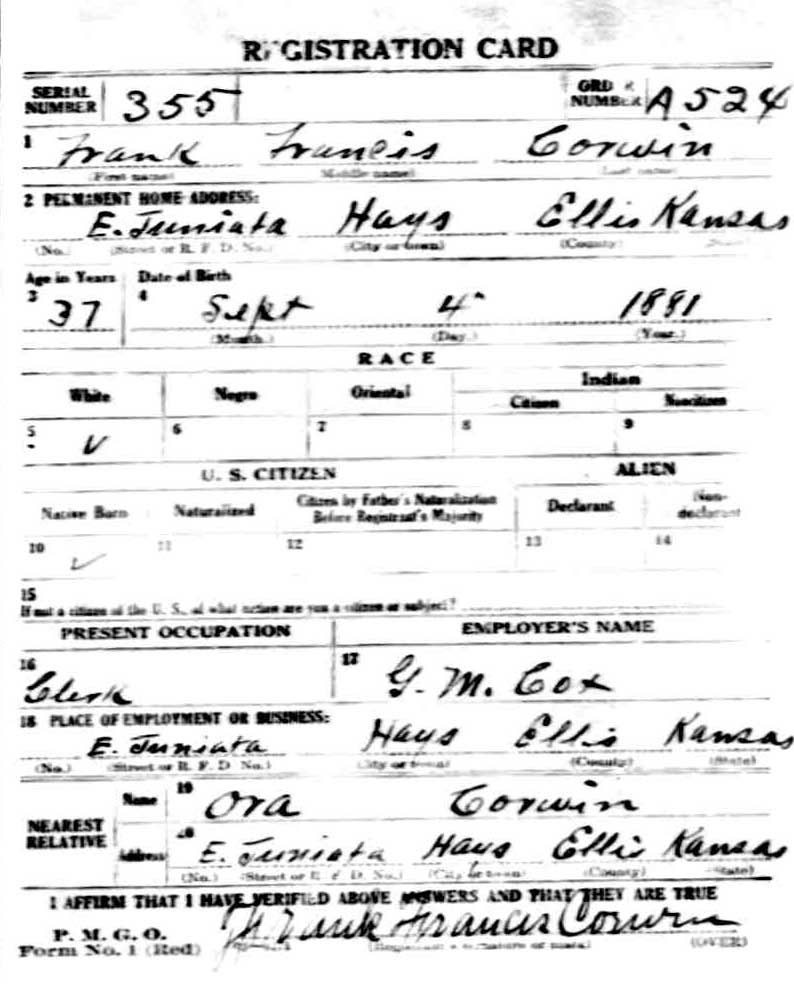 REGISTRATION CARD
SERIAL NUMBER 355 ORDER NUMBER A 524
1 Frank Francis Corwin
(First name) (Middle name) (Last name)
2 PERMANENT HOME ADDRESS:
E. Juniata Hays Ellis Kansas
(No.) (Street or R. F. D. No.) (City or town) (County) (State)
Age in Years Date of Birth
3 37 4 Sept 4 1881
(Month.) (Day.) (Year.)
RACE
White Negro Oriental Indian
Citizen Noncitizen
5 ✓ 6 7 8 9
U. S. CITIZEN ALIEN
Native Born Naturalized Citizen by Father's Naturalization Before Registrant's Majority Declarant Non-declarant
10 ✓ 11 12 13 14
15
If not a citizen of the U. S., of what nation are you a citizen or subject?
PRESENT OCCUPATION EMPLOYER'S NAME
16 Clerk 17 G. M. Cox
18 PLACE OF EMPLOYMENT OR BUSINESS:
E. Juniata Hays Ellis Kansas
(No.) (Street or R. F. D. No.) (City or town) (County) (State)
NEAREST RELATIVE Name 19 Ora Corwin
Address 20 E. Juniata Hays Ellis Kansas
(No.) (Street or R. F. D. No.) (City or town) (County) (State)
I AFFIRM THAT I HAVE VERIFIED ABOVE ANSWERS AND THAT THEY ARE TRUE
P. M. G. O.
Form No. 1 (Red) Frank Francis Corwin
(Registrant's signature or mark) (OVER)